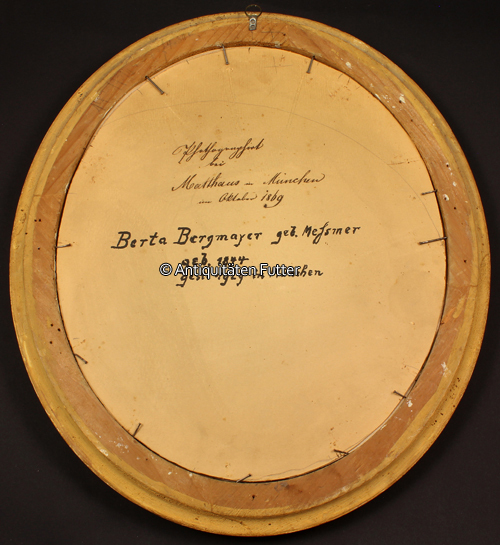 Photographirt
bei
Matthaus in München
im Oktober 1869
Berta Bergmayer geb. Meßmer
geb. 1844
© Antiquitäten Futter
gest. in München